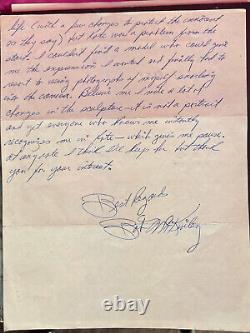 life (with a few changes to protect the innocent
as they say) but Kate was a problem from the
start. I couldn't find a model who could give
me the expression I wanted and finally had to
resort to using photographs of myself snarling
into the camera. Believe me I made a lot of
changes in the sculpture - it is not a portrait
and yet everyone who knows me instantly
recognizes me in Kate - which gives me pause.
At any rate I think I'll keep for but thank
you for your interest.
Best Regards